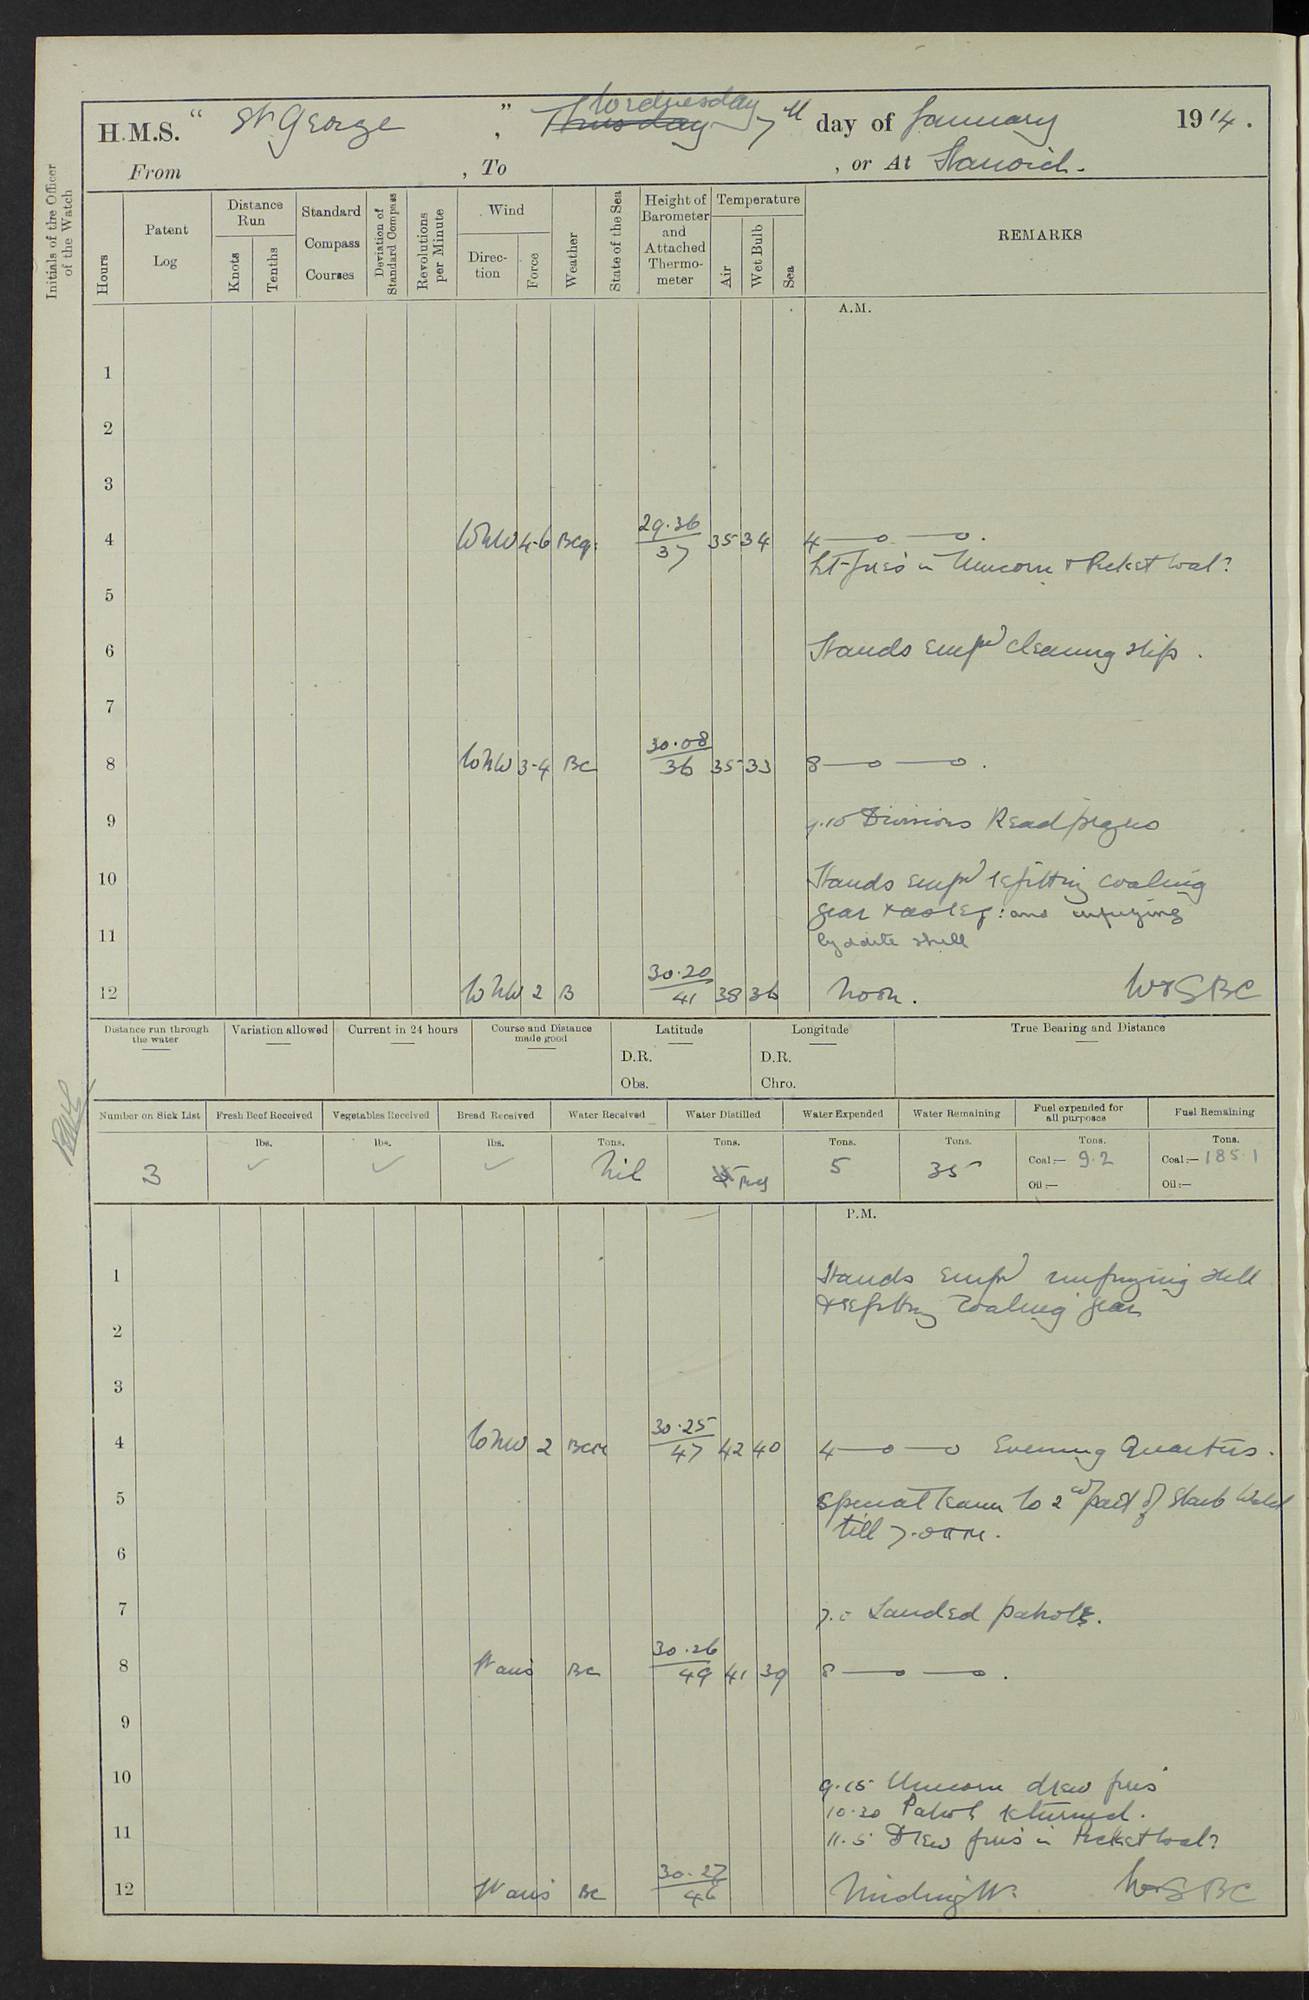 H.M.S. " St George ", Thursday Wednesday 7th day of January 1914.
From , To , or At Harwich.
Initials of the Officer of the Watch
Hours
Patent Log
Distance Run
Knots
Tenths
Standard Compass Courses
Deviation of Standard Compass
Revolutions per Minute
Wind
Direction
Force
Weather
State of the Sea
Height of Barometer and Attached Thermometer
Temperature
Air
Wet Bulb
Sea
REMARKS
A.M.
1
2
3
4 WNW 4-6 Bcq: 29.36 37 35 34 4 —o —o.
Lt fires in Unicorn & Picket boat
5
6 Hands emp'd cleaning ship.
7
8 WNW 3-4 BC 30.08 36 35 33 8 —o —o.
9 9.10 Divisions Read prayers
10 Hands emp'd refitting coaling
gear
11 lyddite shell
12 WNW 2 B 30.20 41 38 36 Noon. W&SBC
Distance run through the water
Variation allowed
Current in 24 hours
Course and Distance made good
Latitude
D.R.
Obs.
Longitude
D.R.
Chro.
True Bearing and Distance
Number on Sick List Fresh Beef Received Vegetables Received Bread Received Water Received Water Distilled Water Expended Water Remaining Fuel expended for all purposes Fuel Remaining
lbs. lbs. lbs. Tons. Tons. Tons. Tons. Tons. Tons.
3 ✓ ✓ ✓ Nil 5 35 Coal:— 9.2 Coal:— 185.1
Oil:— Oil:—
P.M.
1 Hands emp'd unfuzing shell
& refitting coaling gear
2
3
4 WNW 2 Bcm 30.25 47 42 40 4 —o —o Evening Quarters.
5 Special leave to 2nd part of Starb Watch
till 7.0 am.
6
7 7.0 Landed patrols.
8 Var's BC 30.26 49 41 39 8 —o —o.
9
10 9.15 Unicorn drew fires
10.30 Patrol returned.
11 11.5 Drew fires in Picket boat
12 Var's BC 30.27 46 Midnight. W&SBC